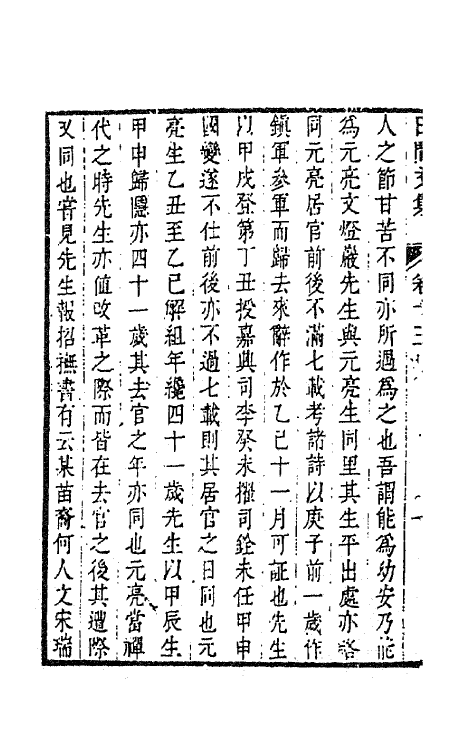 人之節甘苦不同亦所遇為之也吾謂能為幼安乃能
為元亮文燈巖先生與元亮生同里其生平出處亦畧
同元亮居官前後不滿七載考諸詩以庚子前一歲作
鎮軍參軍而歸去來辭作於乙巳十一月可証也先生
以甲戌登第丁丑授嘉興司李癸未擢司銓未任甲申
國變遂不仕前後亦不過七載則其居官之日同也元
亮生乙丑至乙巳解組年纔四十一歲先生以甲辰生
甲申歸隱亦四十一歲其去官之年亦同也元亮當禪
代之時先生亦值改革之際而皆在去官之後其遭際
又同也嘗見先生報招撫書有云某苗裔何人文宋瑞